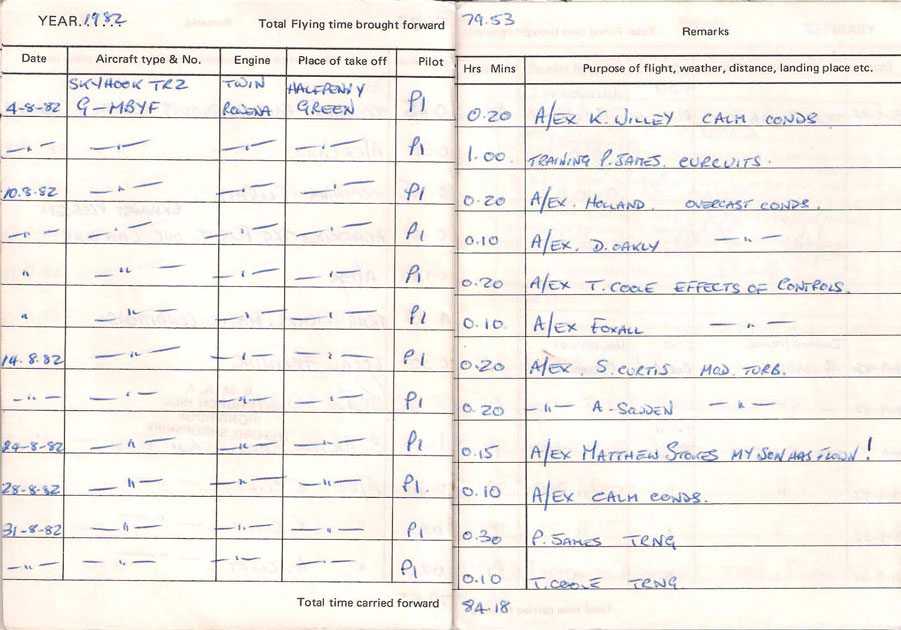 YEAR 1982 Total Flying time brought forward 79.53 Remarks
Date Aircraft type & No. Engine Place of take off Pilot Hrs Mins Purpose of flight, weather, distance, landing place etc.
SKYHOOK TR2 TWIN HALFPENNY
4-8-82 G-MBYF ROWENA GREEN P1 0.20 A/EX K. WILLEY CALM CONDS
—"— —"— —"— —"— P1 1.00. TRAINING P. JAMES. CURCUITS.
10.8-82 —"— —"— —"— P1 0.20 A/EX. HOLLAND. OVERCAST CONDS.
—"— —"— —"— —"— P1 0.10 A/EX. D. OAKLY —"—
" —"— —"— —"— P1 0.20 A/EX T. COOLE EFFECTS OF CONTROLS.
" —"— —"— —"— P1 0.10. A/EX FOXALL —"—
14.8.82 —"— —"— —"— P1 0.20 A/EX. S. CURTIS MOD. TURB.
—"— —"— —"— —"— P1 0.20 —"— A. —"—
24-8-82 —"— —"— —"— P1 0.15 A/EX MATTHEW STOKES MY SON HAS FLOWN!
28-8-82 —"— —"— —"— P1. 0.10 A/EX CALM CONDS.
31-8-82 —"— —"— —"— P1 0.30 P. JAMES TRNG
—"— —"— —"— —"— P1 0.10 T. COOLE TRNG.
Total time carried forward 84-18